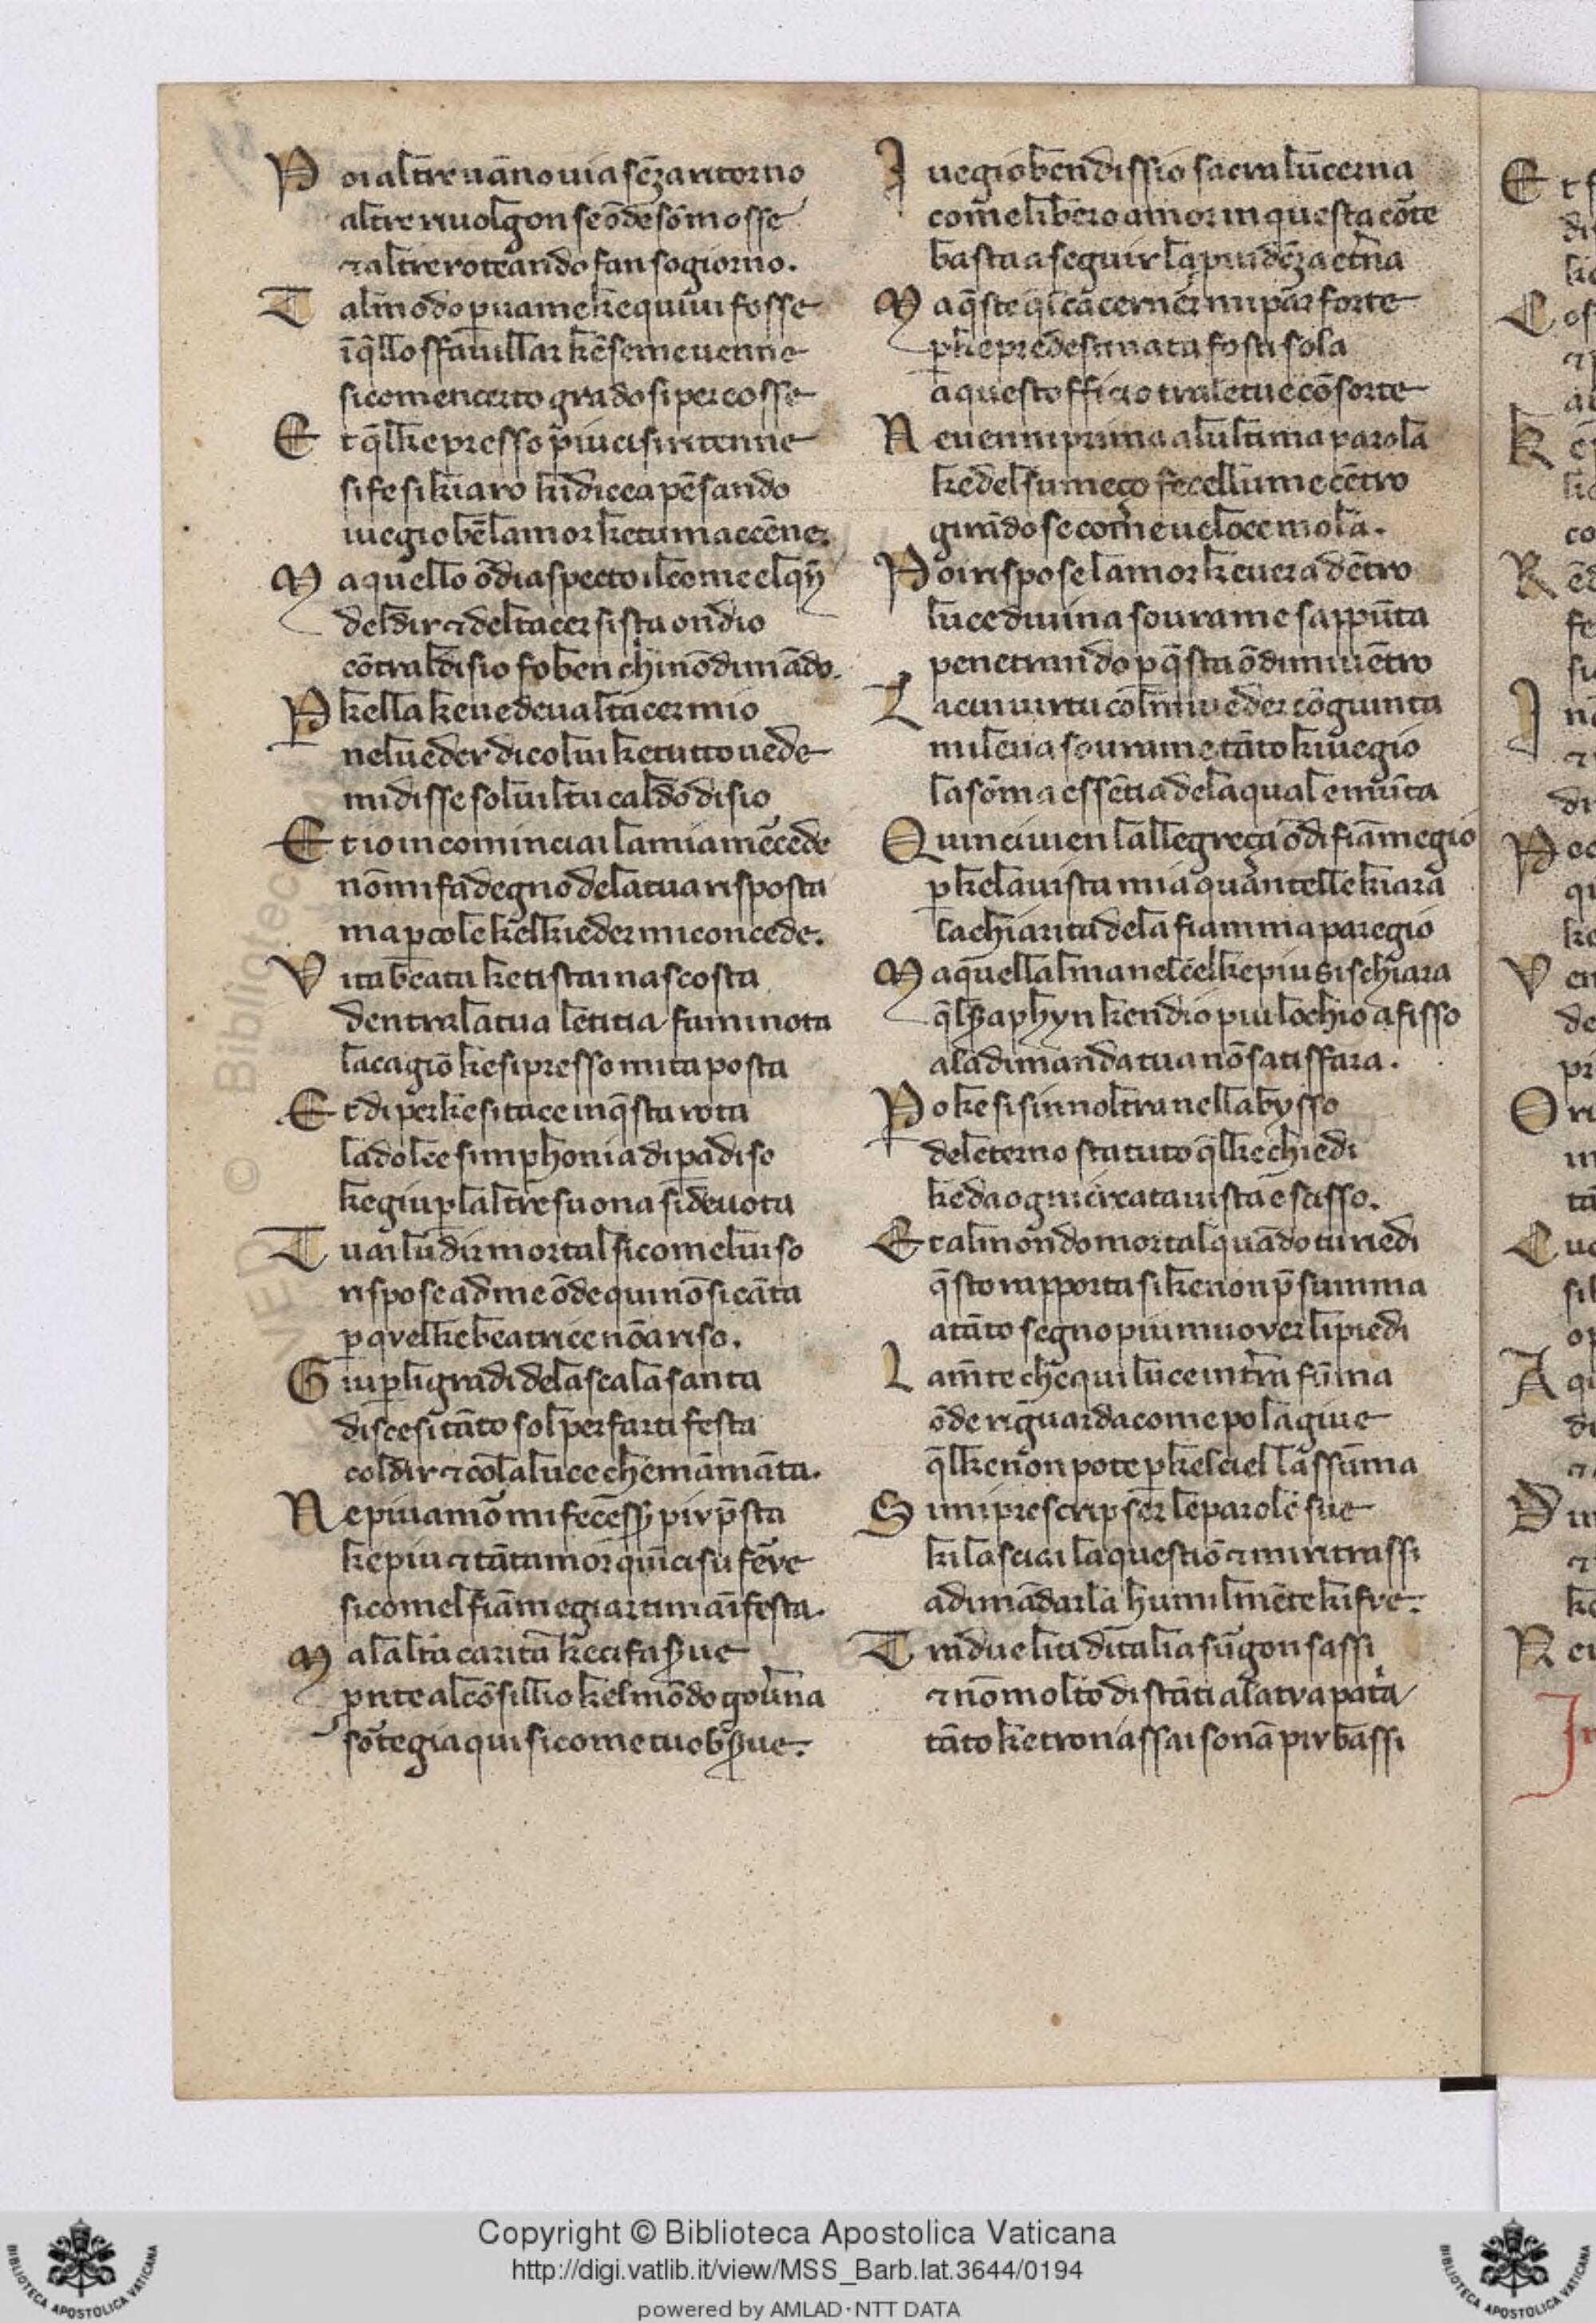 Poi altre uāno uia sēza ritorno
altre riuolgon se ōde sōn mosse
⁊ altre roteando fan sogiorno.
Tal modo parue a me ke quiui fosse
ī q̄llo sfauillar ke seme uenne
si come n certo grado si percosse
Et q̄l ke presso piu ci si ritenne
si fe si kiaro kidicea pēsando
iuegio bē lamor ke tu maccēne.
Ma quella ōdi aspecto il come el qn̄
del dir ⁊ del tacer si sta ondio
cōtral disio fo ben chi nō dimādo.
P kella ke uedeua l tacer mio
nel ueder di colui ke tutto uede
mi disse solui l tu caldo disio
Et io incominciai la mia mēcede
nō mi fa degno de la tua risposta
ma p cole kel kieder mi concede.
Vita beata ke ti stai nascosta
dentra la tua letitia fammi nota
la cagiō ke si presso mi ta posta
Et di perke si tace in q̄sta rota
la dolce simphonia di padiso
ke giu p laltre suona si deuota
Tu ai ludir mortal si come luiso
rispose ad me ōde qui nō si cāta
p qvel ke beatrice nō a riso.
Giu p li gradi de la scala santa
discesi tāto sol per farti festa
col dir ⁊ cō la luce che māmāta.
Ne piu amō mi fecē esser piv p̄sta
ke piu ⁊ tātamor quīci su ferve
si come l fiāmegiar ti māifesta.
Ma lalta carita ke ci fa serue
prōte al cōsillio kel mōdo gou̓na
sōtegia qui si come tu obserue.
I uegio ben dissio sacra lucerna
come libero amor in questa corte
basta a seguir la puidēza etn̄a
Ma q̄ste q̄l ca cerner mi par forte
p ke predestinata fosti sola
a questo officio tra le tue cōsorte
Ne uenni prima a lultima parola
ke del su meço fece llume cētro
girādo se come ueloce mola.
Poi rispose lamor ke uera dētro
luce diuina soura me sappūta
penetrando p q̄sta ōdi mi uētro
La cui uirtu col mi ueder cōgiunta
mi leua soura me tāto ki uegio
la sōma essētia de la quale mūta
Quinci uien lallegreça ōdi fiāmegio
p ke la uista mia quantelle kiara
la chiarita de la fiamma paregio
Ma quellalma nel cel ke piu si schiara
q̄l seraphyn ken dio piu lochio a fisso
a la dimanda tua nō satisfara.
Po ke si sinnoltra nellabysso
de leterno statuto q̄l ke chiedi
ke da ogni creata uista e scisso.
Et al mondo mortal quādo tu riedi
q̄sto rapporta si ke non p̄summa
a tāto segno piu muover li piedi
La mēte che qui luce in tr̄a fūma
ōde riguarda come po la giue
q̄l ke non pote p kel ciel lassūma
Si mi prescripser le parole sue
ki lasciai la questiō ⁊ mi ritrassi
a dimādarla humilmēte ki fve.
Tra due liti d italia surgon sassi
⁊ nō molto distāti a la tva pat̓a
tāto ke tronī assai sonā piv bassi
Copyright © Biblioteca Apostolica Vaticana
http://digi.vatlib.it/view/MSS_Barb.lat.3644/0194
powered by AMLAD·NTT DATA